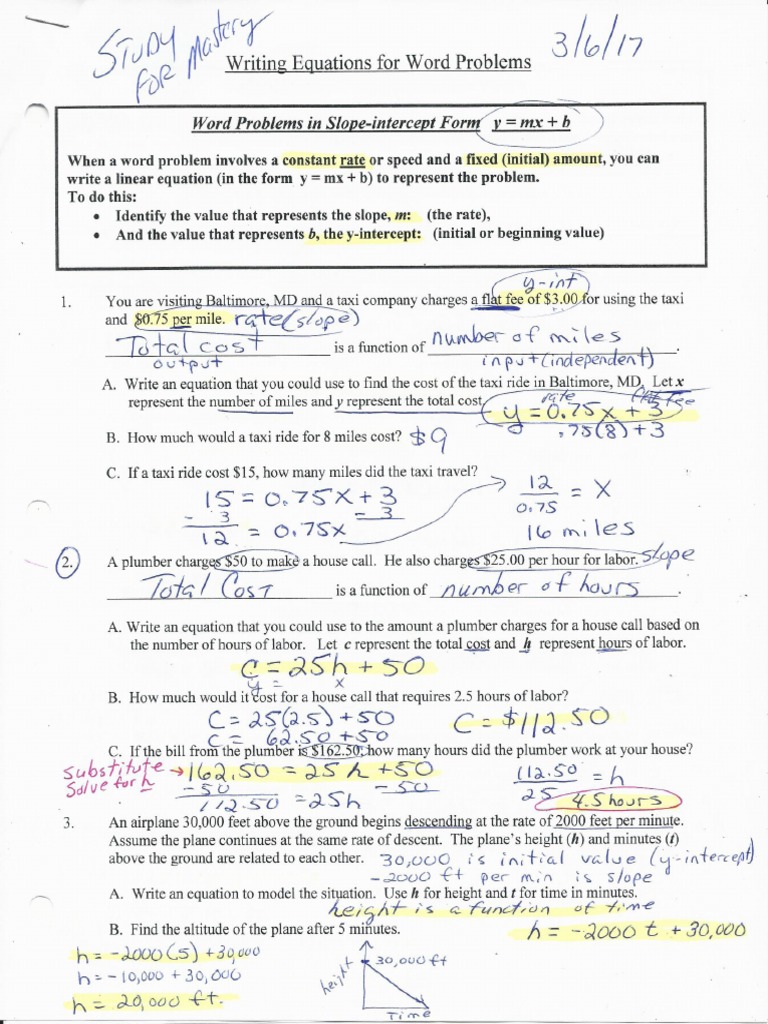 STUDY FOR Mastery
3/6/17
Writing Equations for Word Problems
Word Problems in Slope-intercept Form y = mx + b
When a word problem involves a constant rate or speed and a fixed (initial) amount, you can
write a linear equation (in the form y = mx + b) to represent the problem.
To do this:
• Identify the value that represents the slope, m: (the rate),
• And the value that represents b, the y-intercept: (initial or beginning value)
y-int
1. You are visiting Baltimore, MD and a taxi company charges a flat fee of $3.00 for using the taxi
and $0.75 per mile. rate(slope)
Total cost is a function of number of miles.
output input (independent)
A. Write an equation that you could use to find the cost of the taxi ride in Baltimore, MD. Let x
represent the number of miles and y represent the total cost.
rate flat fee
y = 0.75x + 3
B. How much would a taxi ride for 8 miles cost? $9 .75(8)+3
C. If a taxi ride cost $15, how many miles did the taxi travel?
15 = 0.75x + 3
- 3 - 3
12 = 0.75x
12/0.75 = X
16 miles
2. A plumber charges $50 to make a house call. He also charges $25.00 per hour for labor. slope
Total Cost is a function of number of hours.
A. Write an equation that you could use to the amount a plumber charges for a house call based on
the number of hours of labor. Let c represent the total cost and h represent hours of labor.
C = 25h + 50
y = x
B. How much would it cost for a house call that requires 2.5 hours of labor?
C = 25(2.5) + 50 C = $112.50
C = 62.50 + 50
C. If the bill from the plumber is $162.50, how many hours did the plumber work at your house?
Substitute → 162.50 = 25h + 50
Solve for h -50 -50
112.50 = 25h
112.50/25 = h
4.5 hours
3. An airplane 30,000 feet above the ground begins descending at the rate of 2000 feet per minute.
Assume the plane continues at the same rate of descent. The plane's height (h) and minutes (t)
above the ground are related to each other. 30,000 is initial value (y-intercept)
-2000 ft per min is slope
A. Write an equation to model the situation. Use h for height and t for time in minutes.
height is a function of time
B. Find the altitude of the plane after 5 minutes. h = -2000 t + 30,000
h = -2000(5) + 30,000
h = -10,000 + 30,000
h = 20,000 ft.
30,000 ft
height
Time